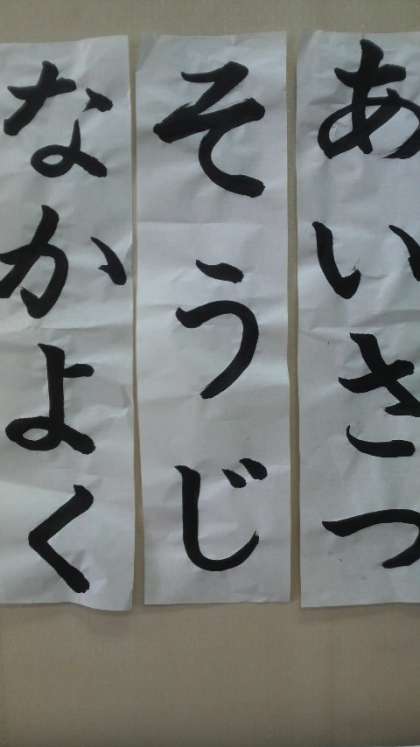 あいさつ
そうじ
なかよく